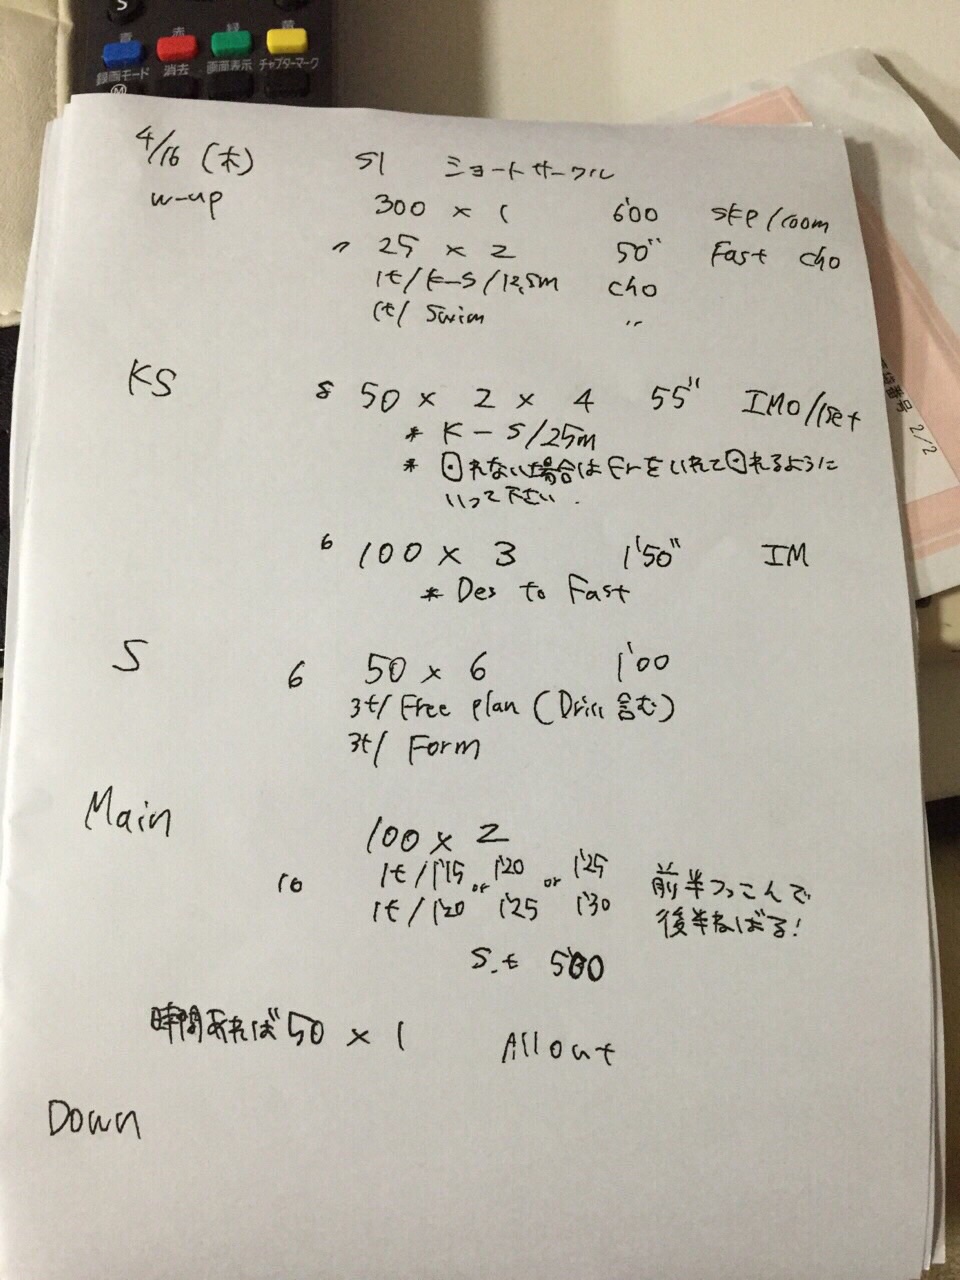 S
青 赤 緑 黄
録画モード 消去 画面表示 チャプターマーク
M
4/16 (木) S1 ショートサークル
w-up 300 × 1 6'00 SKP/100m
〃 25 × 2 50" Fast cho
1t/K-S/12.5m cho
1t/ Swim 〃
KS 8 50 × 2 × 4 55" IMO/1set
* K-S/25m
* 回れない場合はFrをいれて回れるように
いって下さい.
6 100 × 3 1'50" IM
* Des to Fast
S 6 50 × 6 1'00
3t/ Free plan (Drill 含む)
3t/ Form
Main 100 × 2
10 1t/1'15 or 1'20 or 1'25 前半つっこんで
1t/1'20 1'25 1'30 後半ねばる!
S.t 5'00
時間あれば 50 × 1 All out
Down
番号 2/2